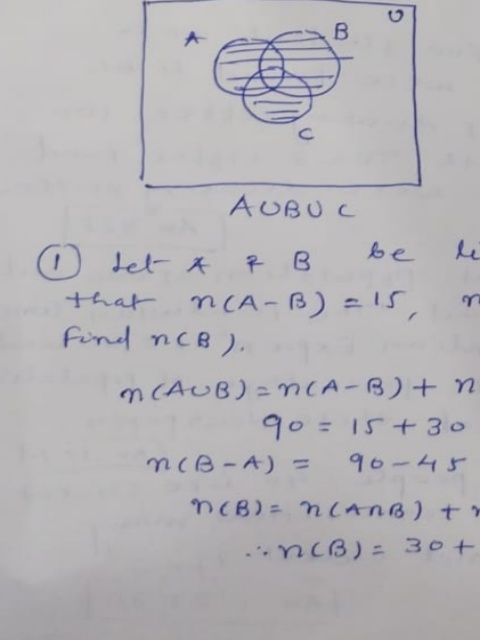 U
A
B
C
A∪B∪C
① Let A & B be
that n(A-B) = 15,
Find n(B).
n(A∪B) = n(A-B) + n
90 = 15 + 30
n(B-A) = 90-45
n(B) = n(A∩B) +
∴ n(B) = 30 +